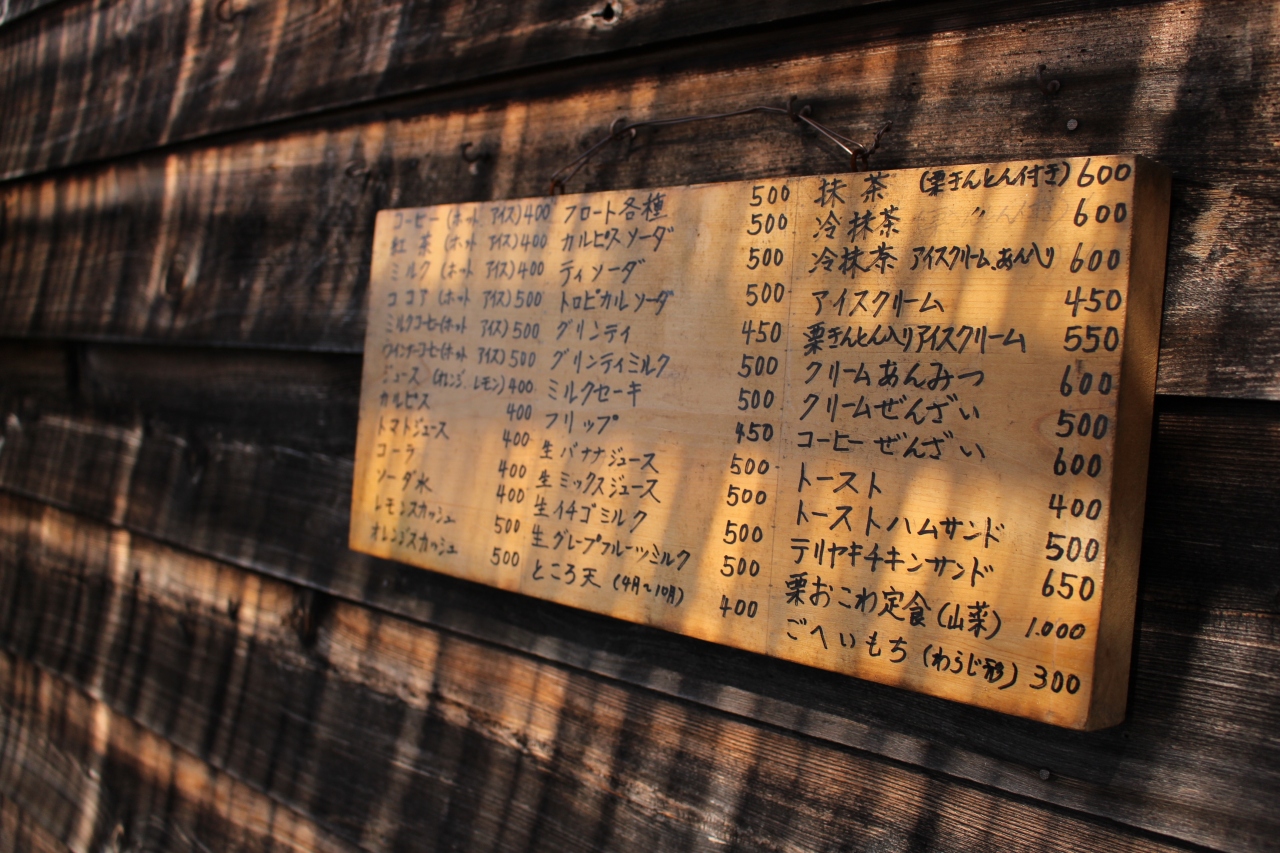 コーヒー (ホット アイス) 400
紅 茶 (ホット アイス) 400
ミルク (ホット アイス) 400
ココア (ホット アイス) 500
ミルクコーヒー(ホット アイス) 500
ウインナーコーヒー(ホット アイス) 500
ジュース (オレンジ レモン) 400
カルピス 400
トマトジュース 400
コーラ 400
ソーダ水 400
レモンスカッシュ 500
オレンジスカッシュ 500
フロート各種 500
カルピスソーダ 500
ティソーダ 500
トロピカルソーダ 500
グリンティ 450
グリンティミルク 500
ミルクセーキ 500
フリップ 450
生バナナジュース 500
生ミックスジュース 500
生イチゴミルク 500
生グレープフルーツミルク 500
ところ天 (4月〜10月) 400
抹 茶 (栗きんとん付き) 600
冷抹茶 〃 600
冷抹茶 アイスクリーム、あん入り 600
アイスクリーム 450
栗きんとん入りアイスクリーム 550
クリームあんみつ 600
クリームぜんざい 500
コーヒーぜんざい 600
トースト 400
トーストハムサンド 500
テリヤキチキンサンド 650
栗おこわ定食(山菜) 1.000
ごへいもち (わらじ形) 300